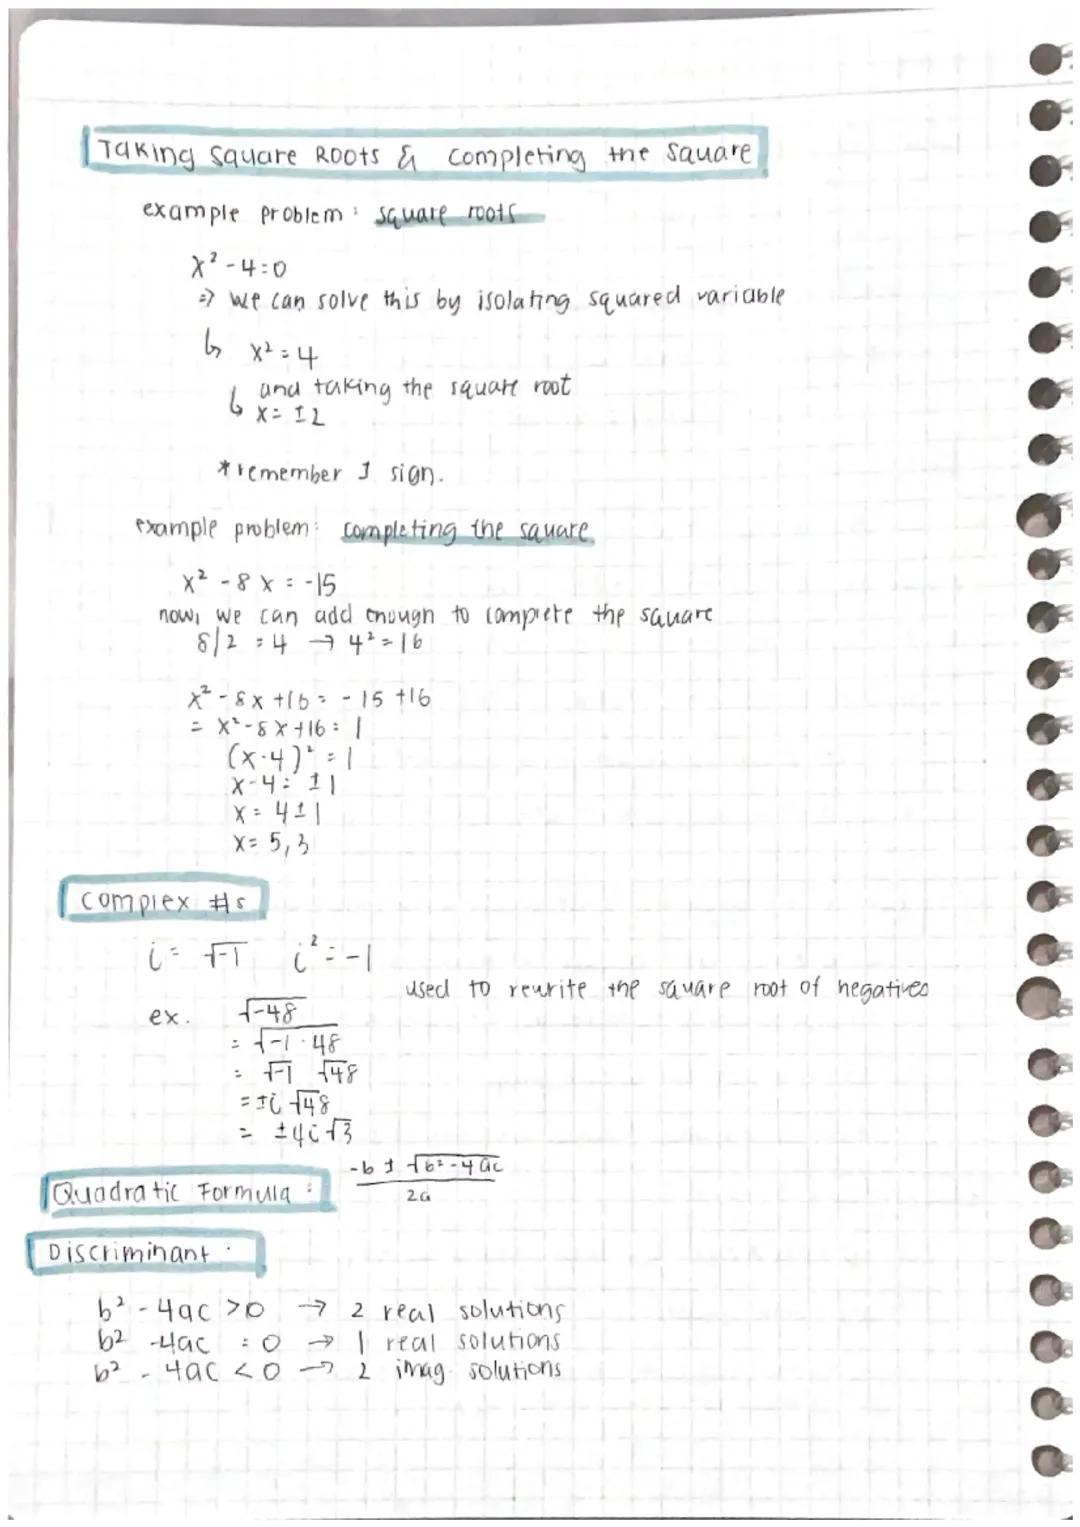 Taking Square Roots & Completing the Square
example problem: square roots
x² - 4 = 0
=> we can solve this by isolating squared variable
↳ x² = 4
↳ and taking the square root
x = ±2
*remember ± sign.
example problem: completing the square
x² - 8x = -15
now, we can add enough to complete the square
8/2 = 4 → 4² = 16
x² - 8x + 16 = -15 + 16
= x² - 8x + 16 = 1
(x-4)² = 1
x - 4 = ±1
x = 4 ± 1
x = 5, 3
Complex #s
i = √-1 i² = -1
used to rewrite the square root of negatives
ex. √-48
= √-1 · 48
= √-1 √48
= ±i √48
= ±4i√3
Quadratic Formula: -b ± √b² - 4ac / 2a
Discriminant:
b² - 4ac > 0 → 2 real solutions
b² - 4ac = 0 → 1 real solutions
b² - 4ac < 0 → 2 imag. solutions